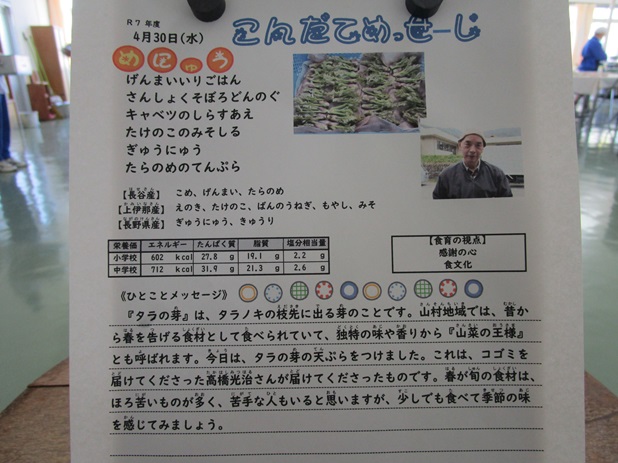 R７ 年度
4月30日(水)
こんだてめっせーじ
めにゅう
げんまいいりごはん
さんしょくそぼろどんのぐ
キャベツのしらすあえ
たけのこのみそしる
ぎゅうにゅう
たらのめのてんぷら
【長谷産】 こめ、げんまい、たらのめ
【上伊那産】 えのき、たけのこ、ばんのうねぎ、もやし、みそ
【長野県産】 ぎゅうにゅう、きゅうり
栄養価 エネルギー たんぱく質 脂質 塩分相当量
小学校 602 kcal 27.8 g 19.1 g 2.2 g
中学校 712 kcal 31.9 g 21.3 g 2.6 g
【食育の視点】
感謝の心
食文化
《ひとことメッセージ》
『タラの芽』は、タラノキの枝先に出る芽のことです。山村地域では、昔か
ら春を告げる食材として食べられていて、独特の味や香りから『山菜の王様』
とも呼ばれます。今日は、タラの芽の天ぷらをつけました。これは、コゴミを
届けてくださった高橋光治さんが届けてくださったものです。春が旬の食材は、
ほろ苦いものが多く、苦手な人もいると思いますが、少しでも食べて季節の味
を感じてみましょう。